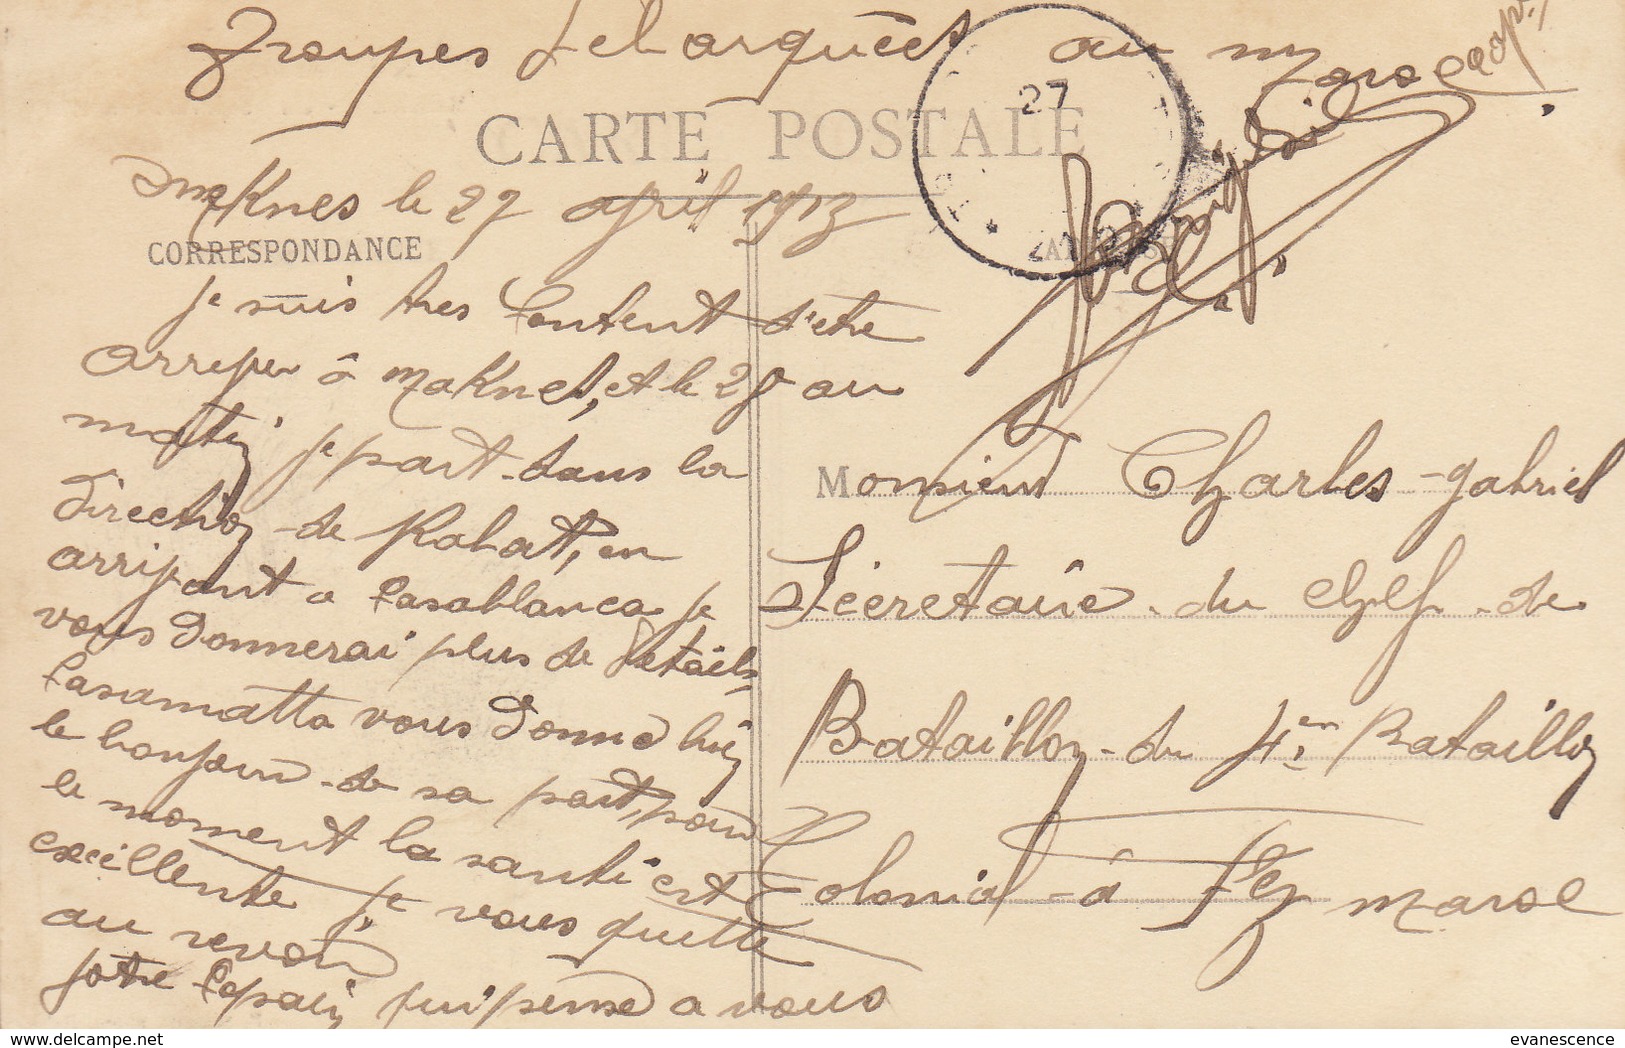 Troupes debarquées au Maroc
CARTE POSTALE
27
Meknes le 27 april 1913
CORRESPONDANCE
Je suis tres Content d'etre
arriver â Maknes, et le 28 au
matin je part dans la
Direction de Rabat, en
arrivant a Casablanca je
vous Donnerai plus de Details,
Casamatta vous Donne bien
le bonjour de sa part, pour
le moment la santé est
excéllente je vous quitte
au revoir
Votre Copain qui pense a vous
Monsieur Charles Gabriel
Sécretaire du Chef de
Bataillon du 4em Bataillon
Colonial â Fez Maroc
evanescence